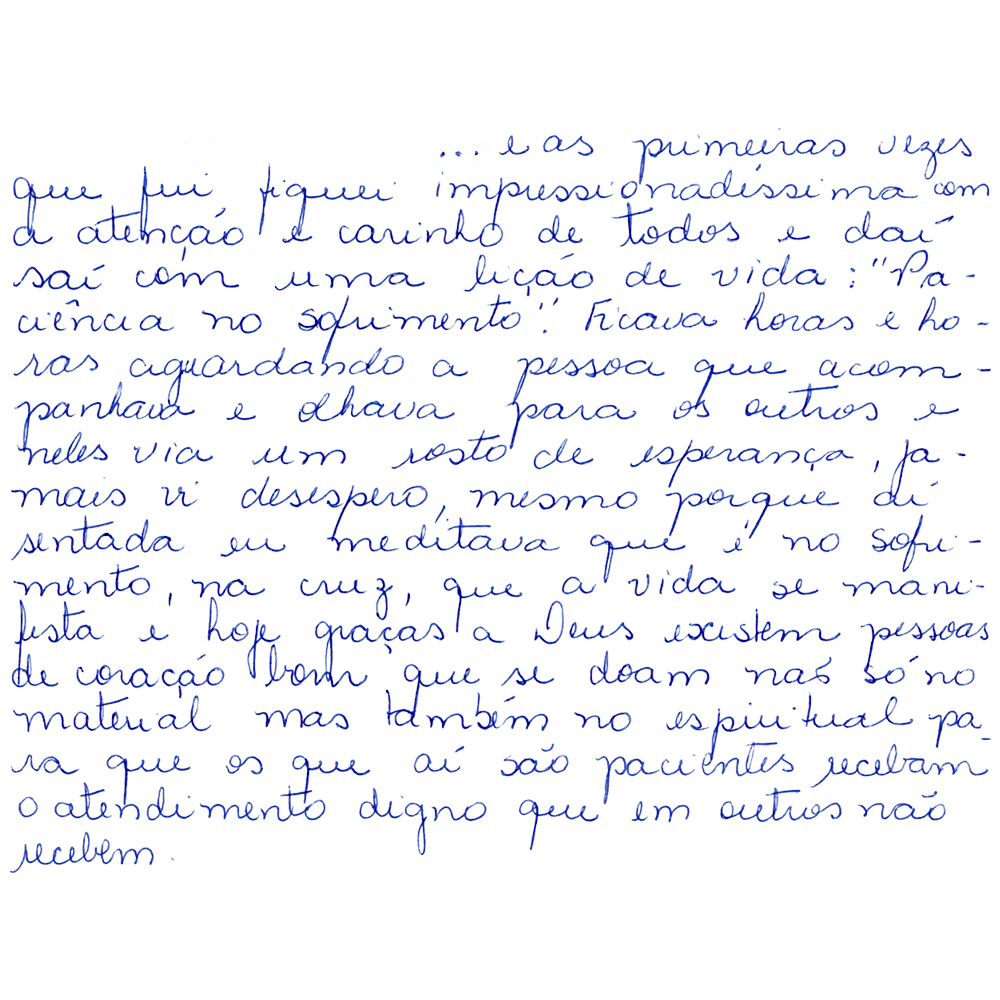 ... e as primeiras vezes
que fui fiquei impressionadíssima com
a atenção e carinho de todos e daí
saí com uma lição de vida: "Pa-
ciência no sofrimento". Ficava horas e ho-
ras aguardando a pessoa que acom-
panhava e olhava para os outros e
neles via um rosto de esperança, ja-
mais vi desespero, mesmo porque aí
sentada eu meditava que é no sofri-
mento, na cruz, que a vida se mani-
festa e hoje graças a Deus existem pessoas
de coração bom que se doam não só no
material mas também no espiritual pa-
ra que os que aí são pacientes recebam
o atendimento digno que em outros não
recebem.